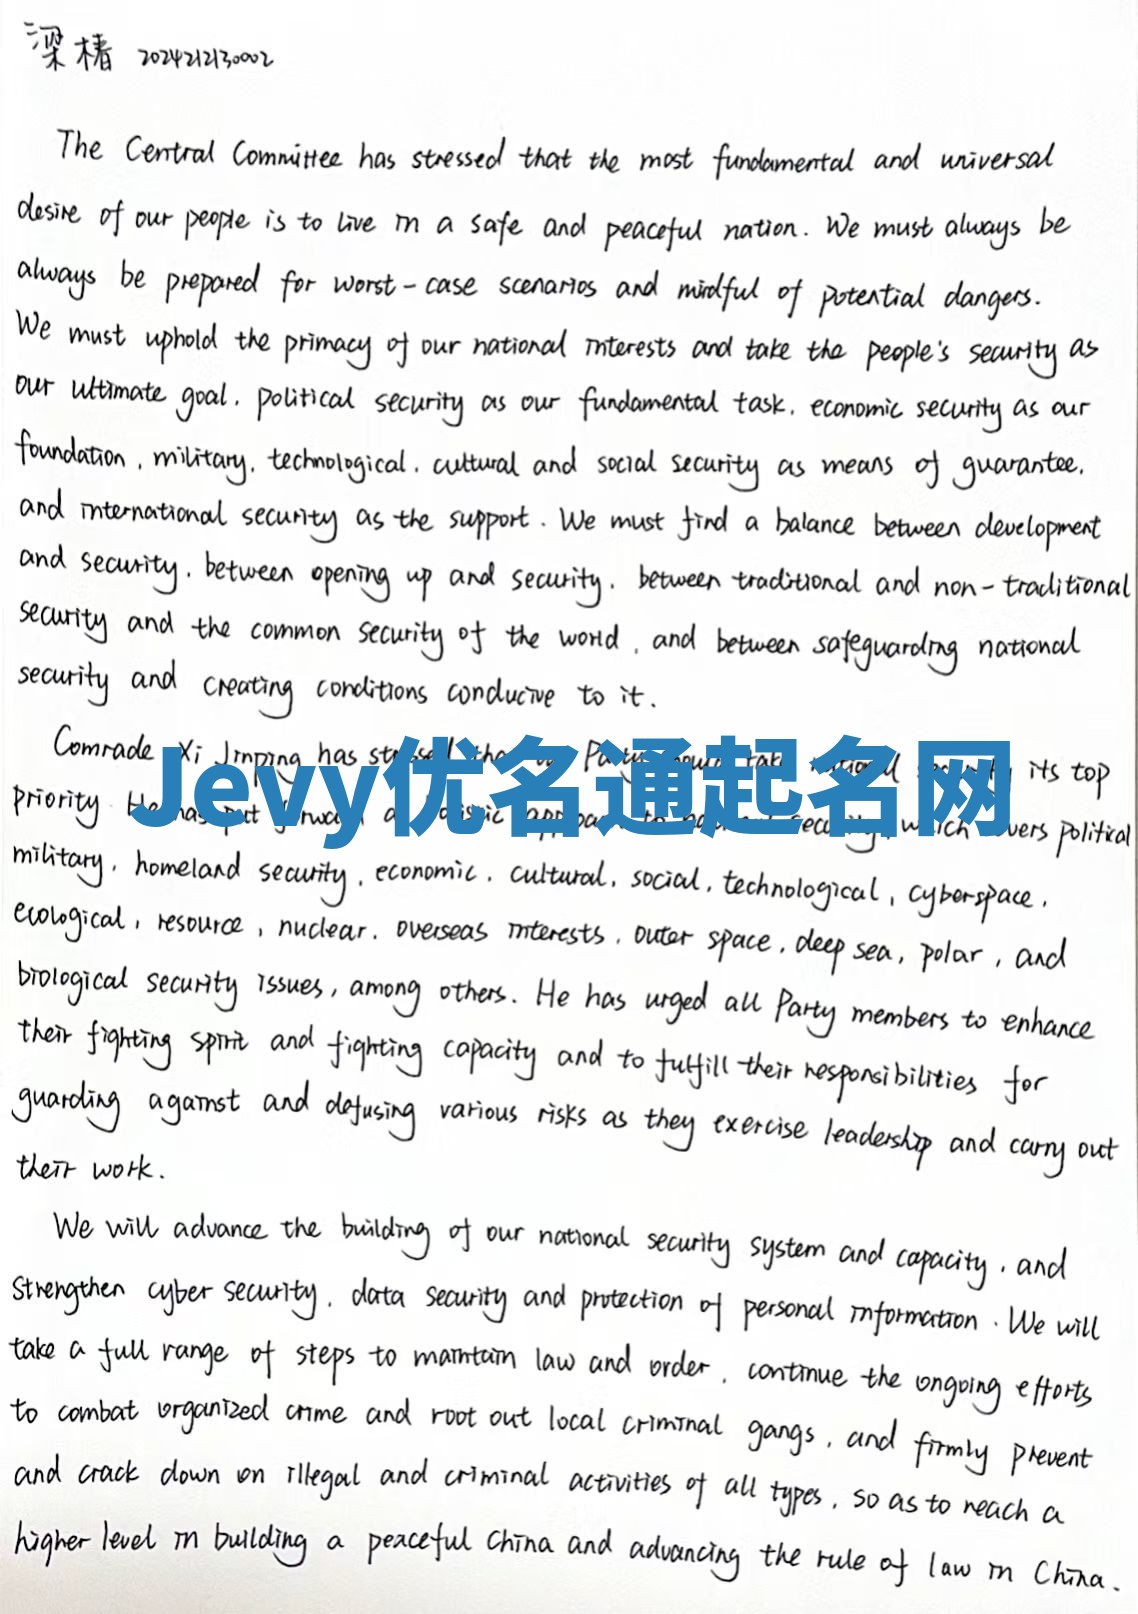 梁椿 2024212130002
The Central Committee has stressed that the most fundamental and universal
desire of our people is to live in a safe and peaceful nation. We must always be
always be prepared for worst-case scenarios and mindful of potential dangers.
We must uphold the primacy of our national interests and take the people's security as
our ultimate goal, political security as our fundamental task, economic security as our
foundation, military, technological, cultural and social security as means of guarantee,
and international security as the support. We must find a balance between development
and security, between opening up and security, between traditional and non-traditional
security and the common security of the world, and between safeguarding national
security and creating conditions conducive to it.
Comrade Xi Jinping has its top
Jevy优名通起名网
priority He has put which political
military, homeland security, economic, cultural, social, technological, cyberspace,
ecological, resource, nuclear, overseas interests, outer space, deep sea, polar, and
biological security issues, among others. He has urged all Party members to enhance
their fighting spirit and fighting capacity and to fulfill their responsibilities for
guarding against and defusing various risks as they exercise leadership and carry out
their work.
We will advance the building of our national security system and capacity, and
strengthen cyber security, data security and protection of personal information. We will
take a full range of steps to maintain law and order, continue the ongoing efforts
to combat organized crime and root out local criminal gangs, and firmly prevent
and crack down on illegal and criminal activities of all types, so as to reach a
higher level in building a peaceful China and advancing the rule of law in China.